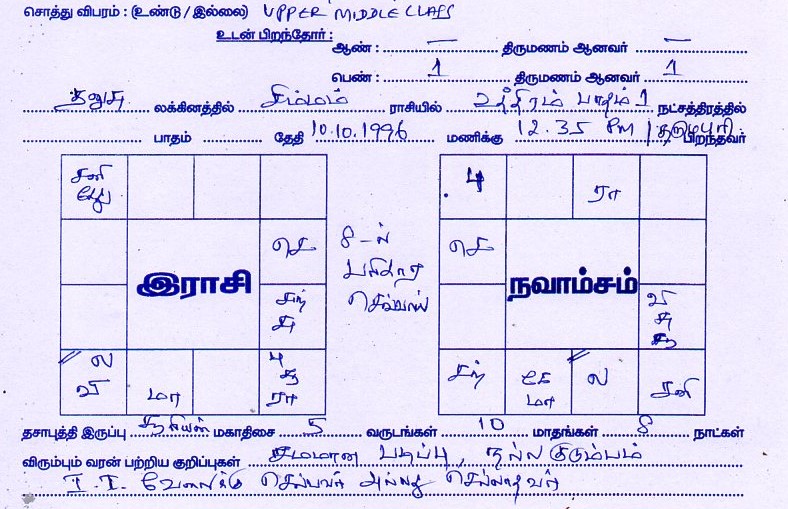 சொத்து விபரம் : (உண்டு / இல்லை) UPPER MIDDLE CLASS
உடன் பிறந்தோர் :
ஆண் : — திருமணம் ஆனவர் —
பெண் : 1 திருமணம் ஆனவர் 1
தனுசு லக்கினத்தில் சிம்மம் ராசியில் உத்திரம் பாதம் 1 நட்சத்திரத்தில்
பாதம் தேதி 10.10.1996 மணிக்கு 12.35 PM / தருமபுரி பிறந்தவர்
சனி
கேது
செ
சந்
சு
ல
வி
மா
பு
சூ
ரா
இராசி
8-ல்
பரிகார
செவ்வாய்
பு
ரா
செ
வி
சு
சூ
சந்
கே
மா
ல
சனி
நவாம்சம்
தசாபுத்தி இருப்பு சூரியன் மகாதிசை 5 வருடங்கள் 10 மாதங்கள் 8 நாட்கள்
விரும்பும் வரன் பற்றிய குறிப்புகள் சமமான படிப்பு, நல்ல குடும்பம்
I.T. வேலைக்கு செல்பவர் அல்லது செல்லாதவர்